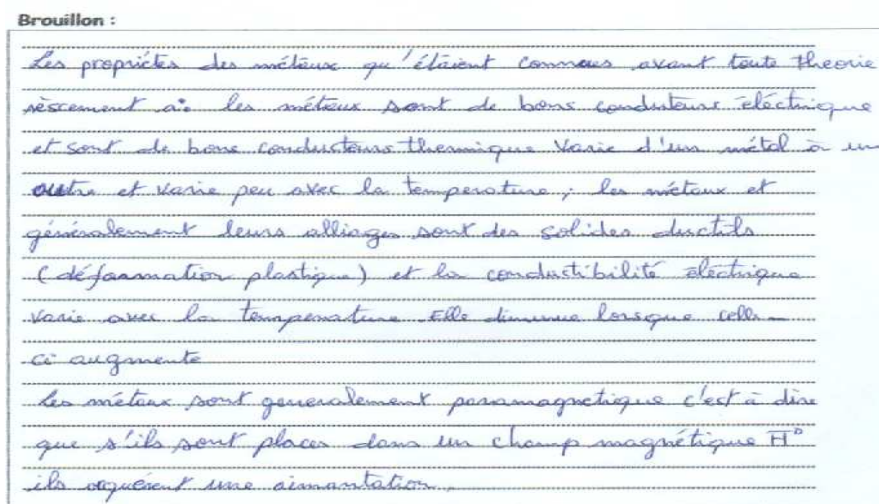 Brouillon :
Les propriétés des métaux qu'étaient connues avant toute theorie
les métaux sont de bons conducteurs éléctrique
et sont de bons conducteurs thermique varie d'un métal à un
outre et varie peu avec la temperature ; les métaux et
généralement leurs alliages sont des solides ductils
(déformation plastique) et la conductibilité éléctrique
varie avec la temperature Elle diminue lorsque celle-
ci augmente
Les métaux sont generalement paramagnetique c'est à dire
que s'ils sont placés dans un champ magnétique
ils aquérent une aimantation.